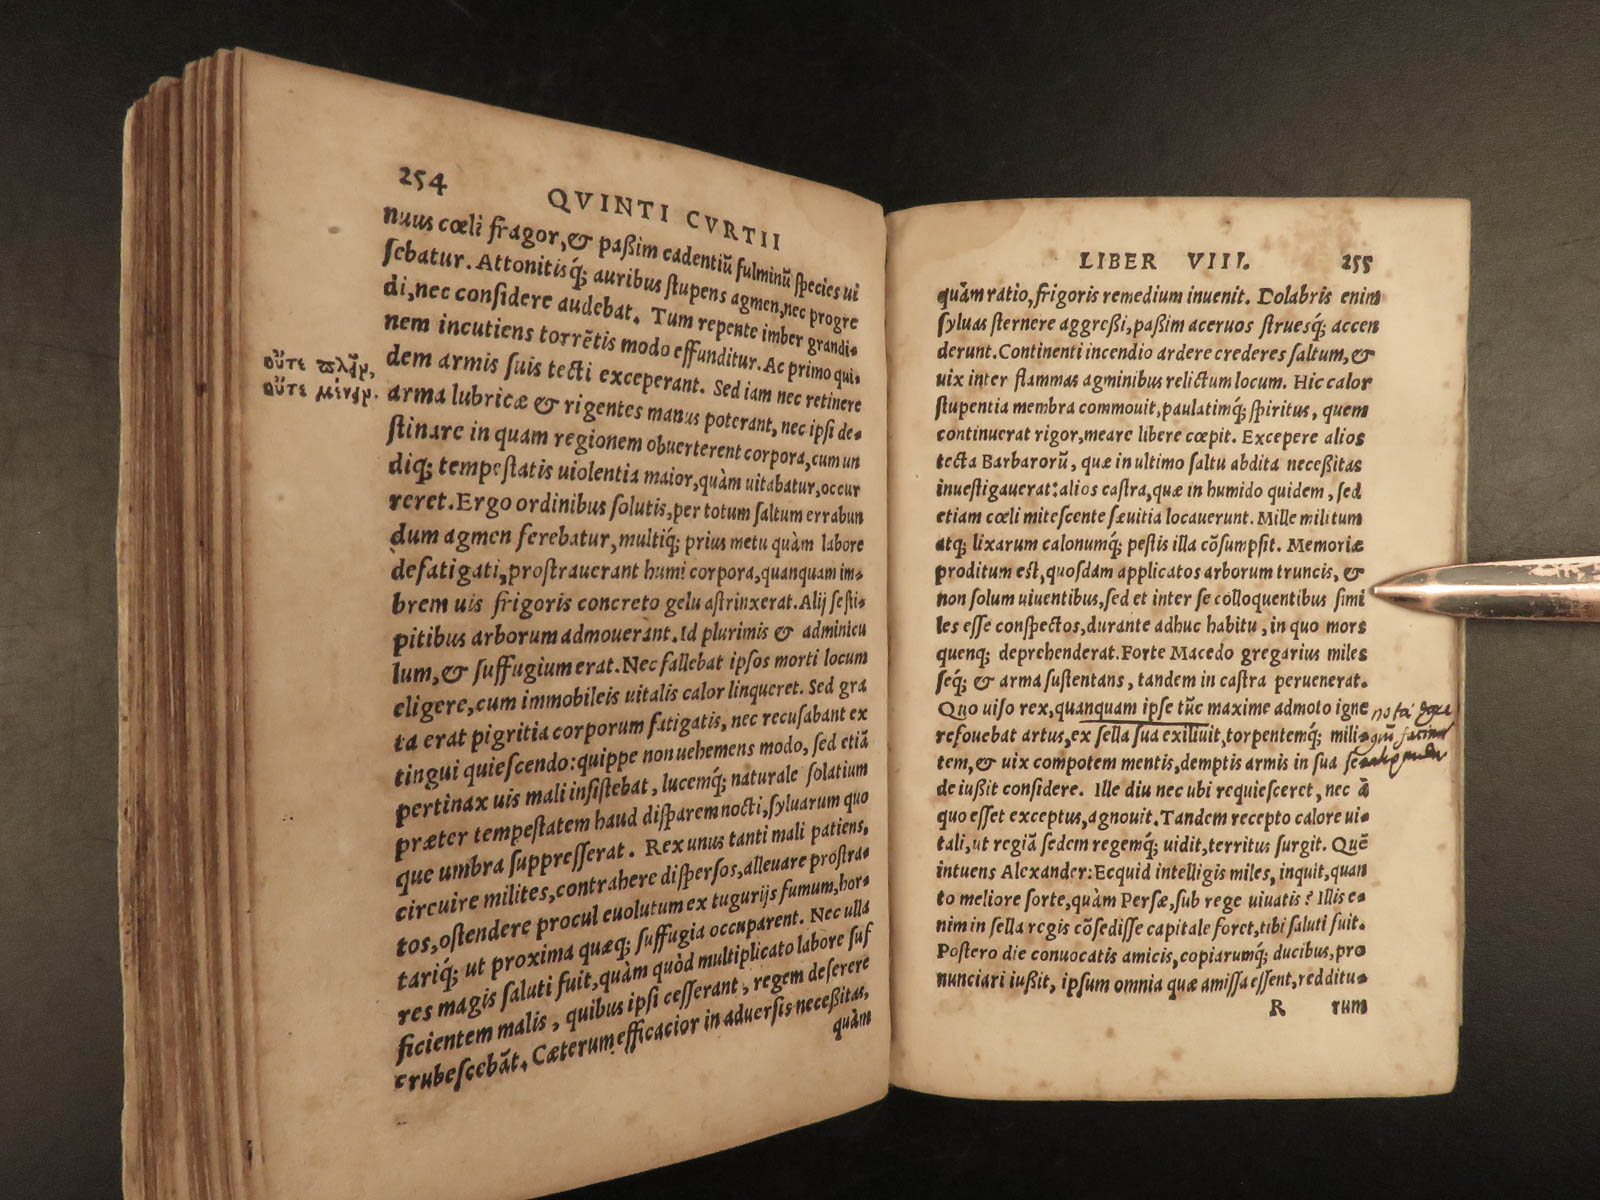 254
QVINTI CVRTII
nuus cœli fragor, & paßim cadentiũ fulminũ ſpecies ui
ſebatur. Attonitisq́; auribus ſtupens agmen, nec progre
di, nec conſidere audebat. Tum repente imber grandi-
nem incutiens torrẽtis modo effunditur. Ac primo qui-
dem armis ſuis tecti exceperant. Sed iam nec retinere
οὔτε
οὔτε
arma lubricæ & rigentes manus poterant, nec ipſi de-
ſtinare in quam regionem obuerterent corpora, cum un
diq; tempeſtatis uiolentia maior, quàm uitabatur, occur
reret. Ergo ordinibus ſolutis, per totum ſaltum errabun
dum agmen ferebatur, multiq́; prius metu quàm labore
defatigati, proſtrauerant humi corpora, quanquam im-
brem uis frigoris concreto gelu aſtrinxerat. Alij ſe ſti-
pitibus arborum admouerant. Id plurimis & adminicu
lum, & ſuffugium erat. Nec fallebat ipſos morti locum
eligere, cum immobileis uitalis calor linqueret. Sed gra
ta erat pigritia corporum fatigatis, nec recuſabant ex
tingui quieſcendo: quippe non uehemens modo, ſed etiã
pertinax uis mali inſiſtebat, lucemq́; naturale ſolatium
præter tempeſtatem haud diſparem nocti, ſyluarum quo
que umbra ſuppreſſerat. Rex unus tanti mali patiens,
circuire milites, contrahere diſperſos, alleuare proſtra-
tos, oſtendere procul euolutum ex tugurijs fumum, hor-
tariq́; ut proxima quæq; ſuffugia occuparent. Nec ulla
res magis ſaluti fuit, quàm quòd multiplicato labore ſuf
ficientem malis, quibus ipſi ceſſerant, regem deſerere
erubeſcebãt. Cæterum efficacior in aduerſis neceßitas,
quàm
LIBER VIII.
255
quàm ratio, frigoris remedium inuenit. Dolabris enim
ſyluas ſternere aggreßi, paßim aceruos ſtruesq́; accen
derunt. Continenti incendio ardere crederes ſaltum, &
uix inter flammas agminibus relictum locum. Hic calor
ſtupentia membra commouit, paulatimq́; ſpiritus, quem
continuerat rigor, meare libere cœpit. Excepere alios
tecta Barbarorũ, quæ in ultimo ſaltu abdita neceßitas
inueſtigauerat: alios caſtra, quæ in humido quidem, ſed
etiam cœli miteſcente ſæuitia locauerunt. Mille militum
atq; lixarum calonumq́; peſtis illa cõſumpſit. Memoriæ
proditum eſt, quoſdam applicatos arborum truncis, &
non ſolum uiuentibus, ſed et inter ſe colloquentibus ſimi
les eſſe conſpectos, durante adhuc habitu, in quo mors
quenq; deprehenderat. Forte Macedo gregarius miles
ſeq́; & arma ſuſtentans, tandem in caſtra peruenerat.
Quo uiſo rex, quanquam ipſe tũc maxime admoto igne
refouebat artus, ex ſella ſua exiliuit, torpentemq́; mili-
tem, & uix compotem mentis, demptis armis in ſua ſe
de iußit conſidere. Ille diu nec ubi requieſceret, nec à
quo eſſet exceptus, agnouit. Tandem recepto calore ui-
tali, ut regiã ſedem regemq́; uidit, territus ſurgit. Quẽ
intuens Alexander: Ecquid intelligis miles, inquit, quan
to meliore ſorte, quàm Perſæ, ſub rege uiuatis? Illis e-
nim in ſella regis cõſediſſe capitale foret, tibi ſaluti fuit.
Poſtero die conuocatis amicis, copiarumq́; ducibus, pro
nunciari iußit, ipſum omnia quæ amiſſa eſſent, redditu-
R rum